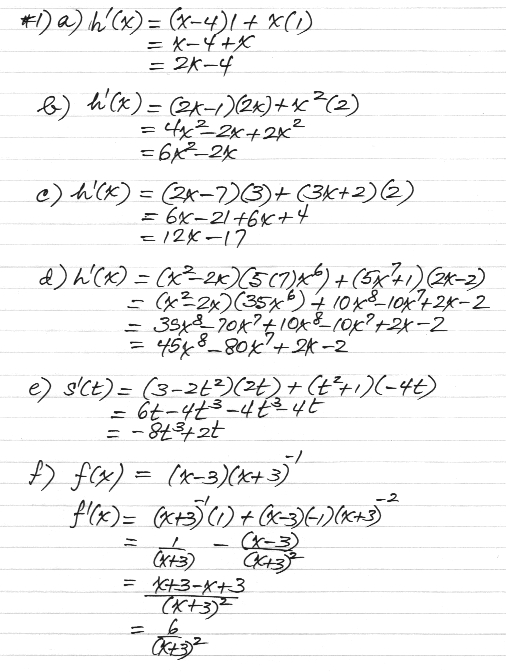 #1) a) h'(x) = (x-4)1 + x(1)
= x-4+x
= 2x-4
b) h'(x) = (2x-1)(2x)+x²(2)
= 4x²-2x+2x²
= 6x²-2x
c) h'(x) = (2x-7)(3)+(3x+2)(2)
= 6x-21+6x+4
= 12x-17
d) h'(x) = (x²-2x)(5(7)x⁶)+(5x⁷+1)(2x-2)
= (x²-2x)(35x⁶)+10x⁸-10x⁷+2x-2
= 35x⁸-70x⁷+10x⁸-10x⁷+2x-2
= 45x⁸-80x⁷+2x-2
e) s'(t) = (3-2t²)(2t)+(t²+1)(-4t)
= 6t-4t³-4t³-4t
= -8t³+2t
f) f(x) = (x-3)(x+3)⁻¹
f'(x) = (x+3)⁻¹(1)+(x-3)(-1)(x+3)⁻²
= 1/(x+3) - (x-3)/(x+3)²
= x+3-x+3/(x+3)²
= 6/(x+3)²